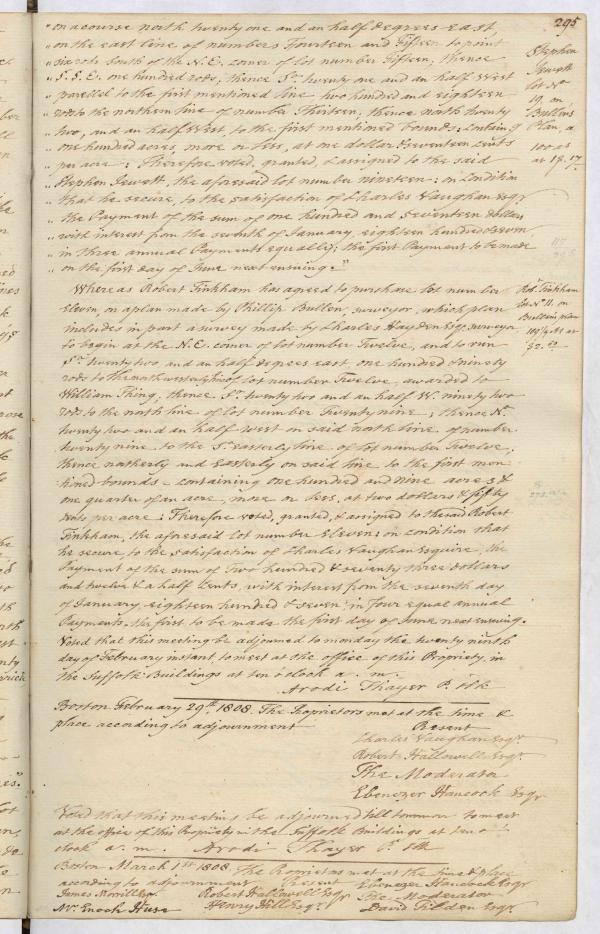 295
"on a course north twenty one and an half degrees East,
"on the east line of numbers Fourteen and Fifteen to point
"six rods South of the N.E. corner of lot number Fifteen, thence
"S.S.E. one hundred rods, thence So. twenty one and an half West
"parellel to the first mentioned line two hundred and eighteen
"rods to the northern line of number Thirteen, thence north twenty
"two, and an half West, to the first mentioned bounds; Containg
"one hundred acres, more or less, at one dollar & seventeen Cents
"per acre: Therefore voted, granted, & assigned to the said
"Stephen Jewett, the aforesaid lot number nineteen: on Condition
"that he secure, to the satisfaction of Charles Vaughan Esqr
"the Payment of the sum of one hundred and seventeen dollars
"with interest from the seventh of January, eighteen hundred & seven,
"in three annual Payments equally; the first Payment to be made
"on the first day of June next ensuing."
Stephen
Jewett
lot No
19. on
Bullins
Plan, a
100 at
at 1$.17
Whereas Robert Tinkham has agreed to purchase lot number
Eleven, on a plan made by Phillip Bullen, surveyor, which plan
includes in part a survey made by Charles Hayden Esqr, surveyor
to begin at the N.E. corner of lot number Twelve, and to run
So. twenty two and an half degrees east one hundred & ninety
rods to the northwesterly line of lot number Twelve, awarded to
William Thing; thence So. twenty two and an half W. ninety two
rods to the north line of lot number Twenty nine; thence No.
twenty two and an half West on said north line of number
twenty nine to the So. easterly line of lot number Twelve;
thence northerly and Easterly on said line to the first men
tioned bounds - containing one hundred and nine acres &
one quarter of an acre, more or less, at two dollars & fifty
Cents per acre: Therefore voted, granted, & assigned to the said Robert
Tinkham, the aforesaid lot number Eleven: on condition that
he secure, to the satisfaction of Charles Vaughan Esquire, the
Payment of the sum of Two hundred & seventy three dollars
and twelve & a half Cents, with interest from the seventh day
of January, eighteen hundred & seven; in four equal annual
Payments, the first to be made the first day of June next ensuing.
Robt. Tinkham
lot No 11. on
Bullin's plan
109 1/4 As. at
$2.50
Voted that this meeting be adjourned to monday the twenty ninth
day of February instant, to meet at the office of this Propriety, in
the Suffolk Buildings at ten o'clock a.m.
Arodi Thayer P. Clk
Boston February 29th 1808. The Proprietors met at the time &
place according to adjournment
Present
Charles Vaughan Esqr.
Robert Hallowell Esqr.
The Moderator
Ebenezer Hancock Esqr
Voted that this meeting be adjourned till tomorrow to meet
at the office of this Propriety in the Suffolk Buildings at ten o'
clock a. m. Arodi Thayer Pr. Clk
Boston March 1st 1808. The Proprietors met at the time & place
according to adjournment Present Ebenezer Hancock Esqr
James Morrill Esqr Robert Hallowell Esqr The Moderator
Mr. Enoch Huse Henry Hill Esqr. David Tilden Esqr.